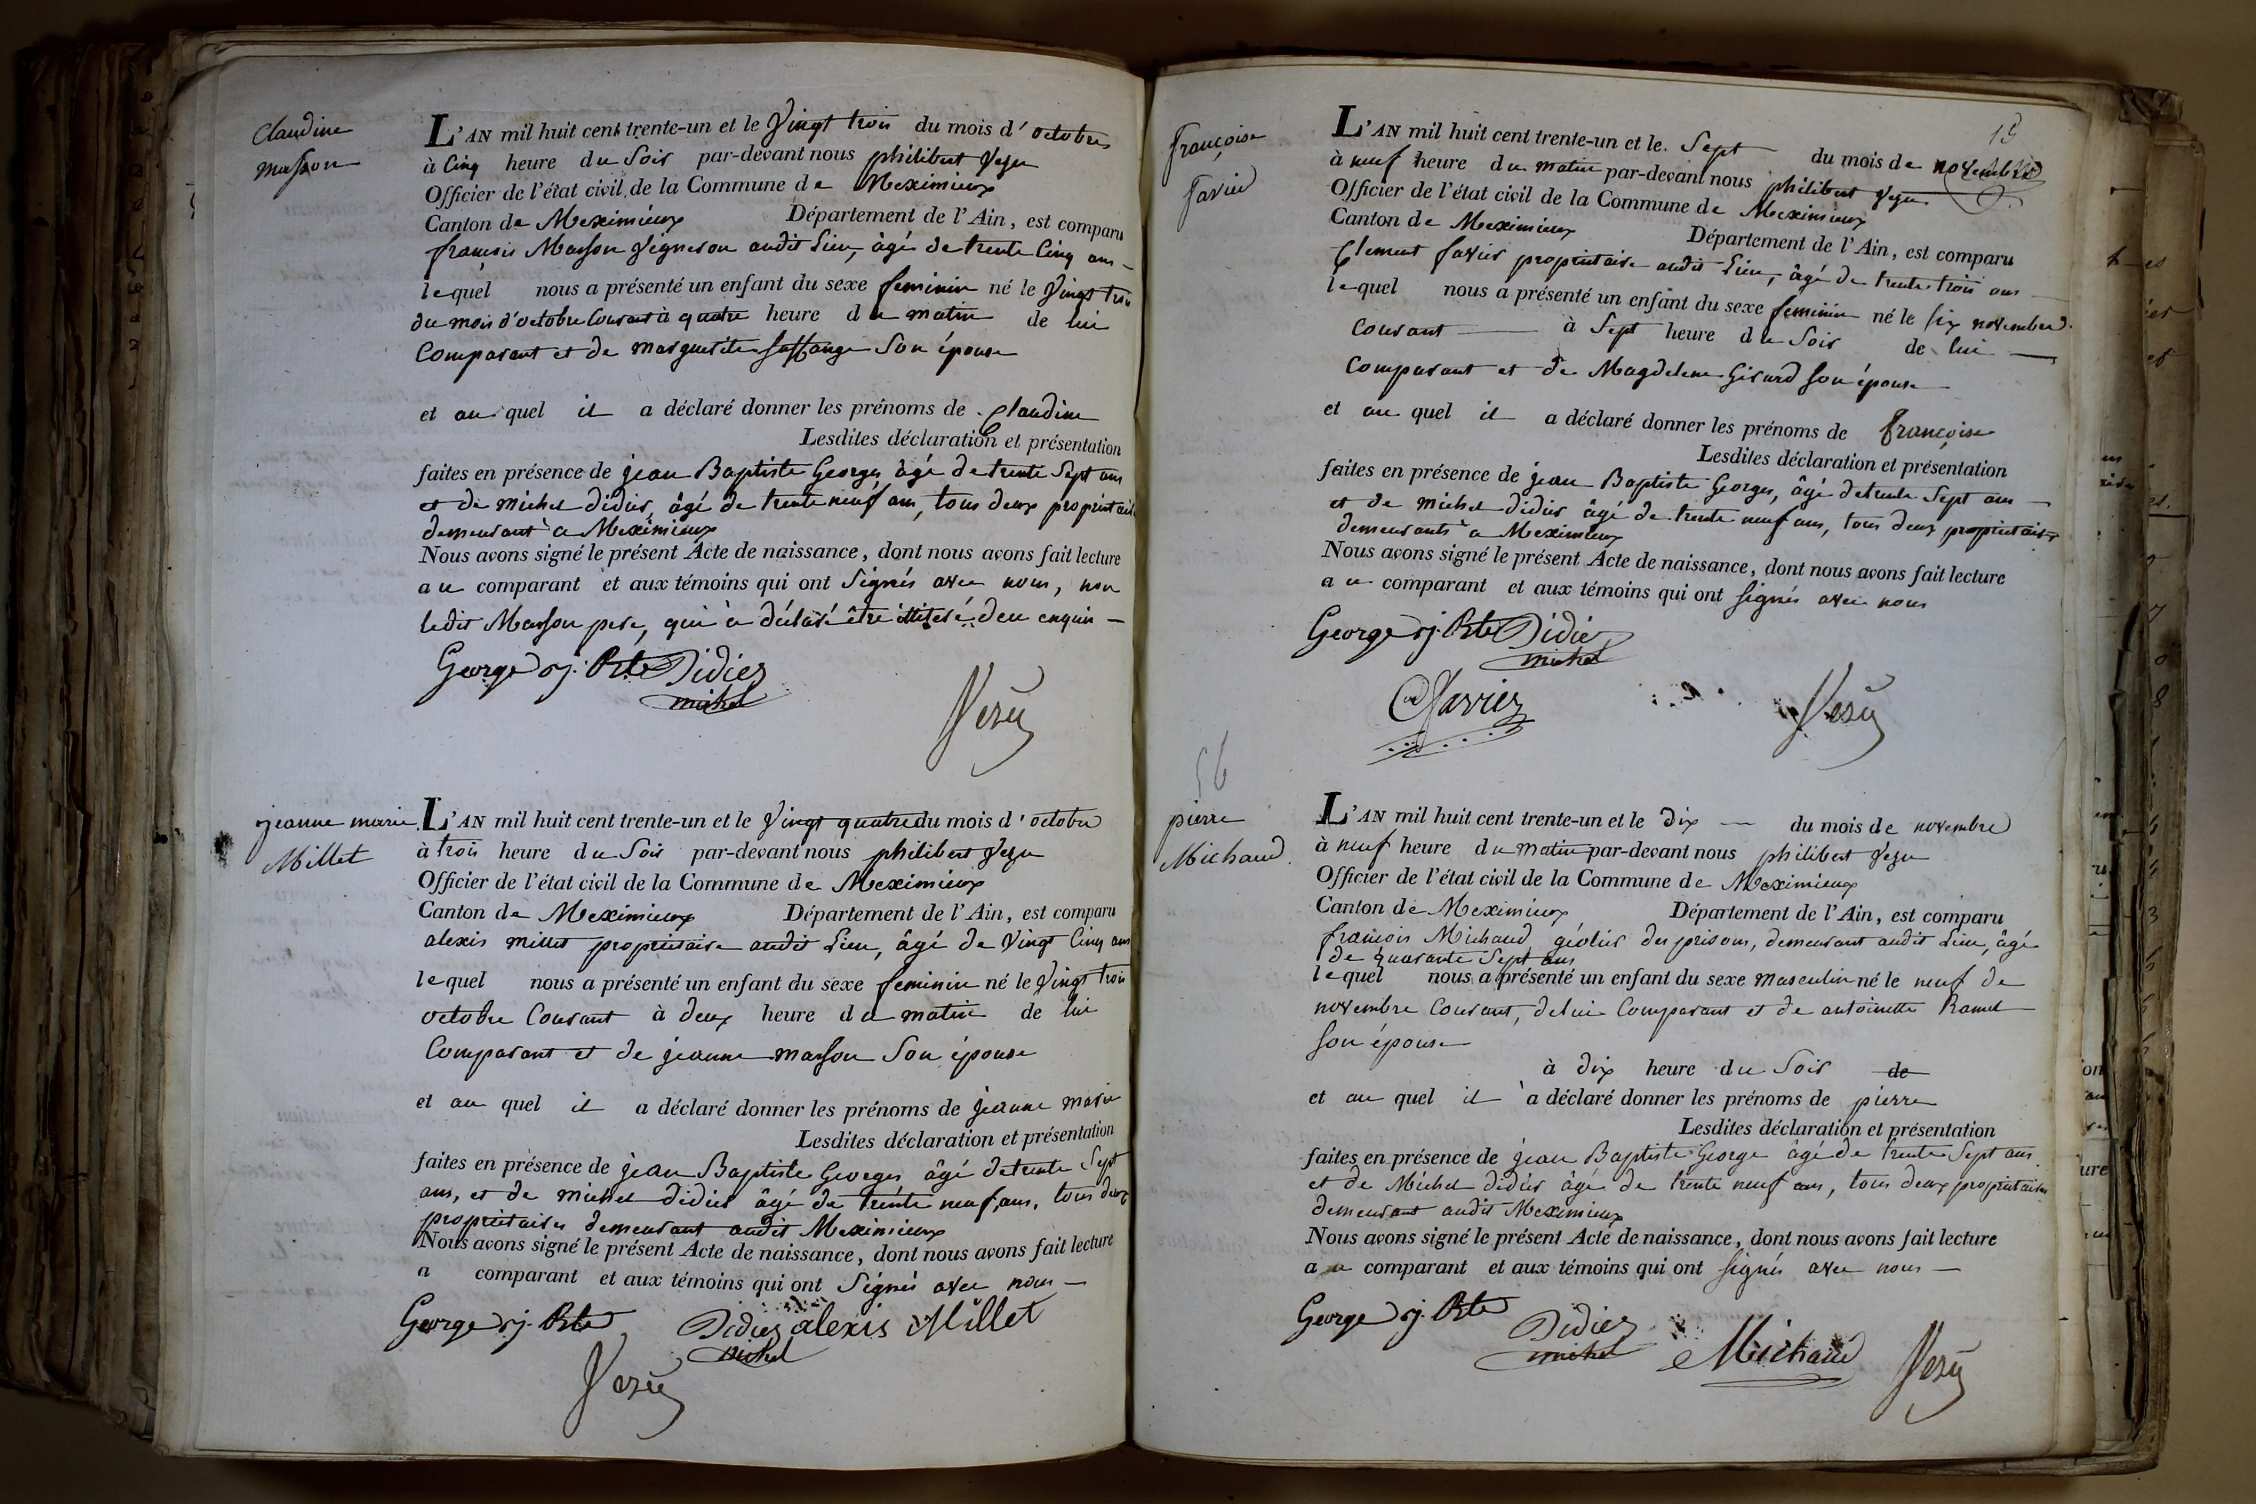 Claudine
Masson
L'AN mil huit cent trente-un et le Vingt trois du mois d'octobre
à Cinq heure du Soir par-devant nous philibert Vezu
Officier de l'état civil de la Commune de Meximieux
Canton de Meximieux Département de l'Ain, est comparu
françois Masson Vigneron audit Lieu, âgé de trente Cinq ans
lequel nous a présenté un enfant du sexe feminin né le Vingt trois
du mois d'octobre Courant à quatre heure du matin de lui
Comparant et de marguerite Son épouse
et au quel il a déclaré donner les prénoms de Claudine
Lesdites déclaration et présentation
faites en présence de jean Baptiste Georges âgé de trente Sept ans
et de michel didier, âgé de trente neuf ans, tous deux propriétaires
demeurant à Meximieux
Nous avons signé le présent Acte de naissance, dont nous avons fait lecture
au comparant et aux témoins qui ont Signés avec nous, non
ledit Masson pere, qui à déclaré être illiteré, deu enquis
George j. Bte Didier
michel
Vezu
jeanne marie
Millet
L'AN mil huit cent trente-un et le Vingt quatre du mois d'octobre
à trois heure du Soir par-devant nous philibert Vezu
Officier de l'état civil de la Commune de Meximieux
Canton de Meximieux Département de l'Ain, est comparu
alexis millet propriétaire audit Lieu, âgé de Vingt Cinq ans
lequel nous a présenté un enfant du sexe feminin né le Vingt trois
octobre Courant à deux heure du matin de lui
Comparant et de jeanne masson Son épouse
et au quel il a déclaré donner les prénoms de jeanne marie
Lesdites déclaration et présentation
faites en présence de jean Baptiste Georges âgé de trente Sept
ans, et de michel didier âgé de trente neuf ans, tous deux
propriétaires demeurant audit Meximieux
Nous avons signé le présent Acte de naissance, dont nous avons fait lecture
a comparant et aux témoins qui ont Signés avec nous
George j. Bte Didier alexis Millet
michel
Vezu
15
françoise
favier
L'AN mil huit cent trente-un et le. Sept du mois de novembre
à neuf heure du matin par-devant nous philibert Vezu
Officier de l'état civil de la Commune de Meximieux
Canton de Meximieux Département de l'Ain, est comparu
Clement favier propriétaire audit Lieu, âgé de trente trois ans
lequel nous a présenté un enfant du sexe feminin né le six novembre
Courant à Sept heure du Soir de lui
Comparant et de Magdelene Girard son épouse
et au quel il a déclaré donner les prénoms de françoise
Lesdites déclaration et présentation
faites en présence de jean Baptiste Georges, âgé de trente Sept ans
et de michel didier âgé de trente neuf ans, tous deux propriétaires
demeurants à Meximieux
Nous avons signé le présent Acte de naissance, dont nous avons fait lecture
au comparant et aux témoins qui ont signés avec nous
George j. Bte Didier
michel
Favier
Vezu
56
pierre
Michaud
L'AN mil huit cent trente-un et le Dix du mois de novembre
à neuf heure du matin par-devant nous philibert Vezu
Officier de l'état civil de la Commune de Meximieux
Canton de Meximieux Département de l'Ain, est comparu
françois Michaud géolier des prisons, demeurant audit Lieu, âgé
de quarante Sept ans
lequel nous a présenté un enfant du sexe masculin né le neuf de
novembre Courant, de lui Comparant et de antoinette Ramel
son épouse
à dix heure du Soir de
et au quel il à déclaré donner les prénoms de pierre
Lesdites déclaration et présentation
faites en présence de jean Baptiste George âgé de trente Sept ans
et de Michel didier âgé de trente neuf ans, tous deux propriétaires
demeurant audit Meximieux
Nous avons signé le présent Acte de naissance, dont nous avons fait lecture
au comparant et aux témoins qui ont signés avec nous
George j. Bte Didier
michel Michaud Vezu